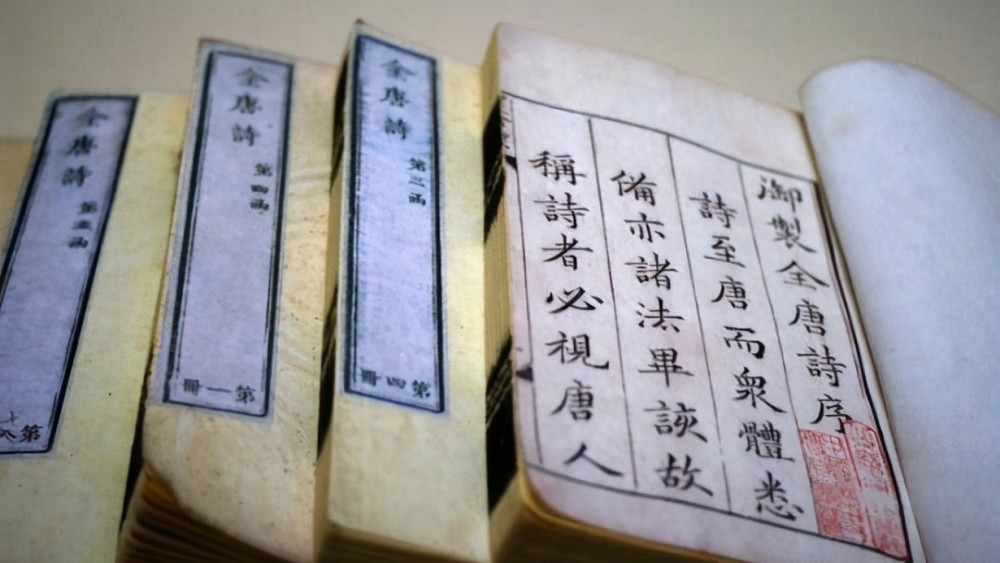 御製全唐詩序
詩至唐而衆體悉
備亦諸法畢詼故
稱詩者必視唐人
全唐詩
第三函
第四冊
全唐詩
第四函
第一冊
全唐詩
第五函